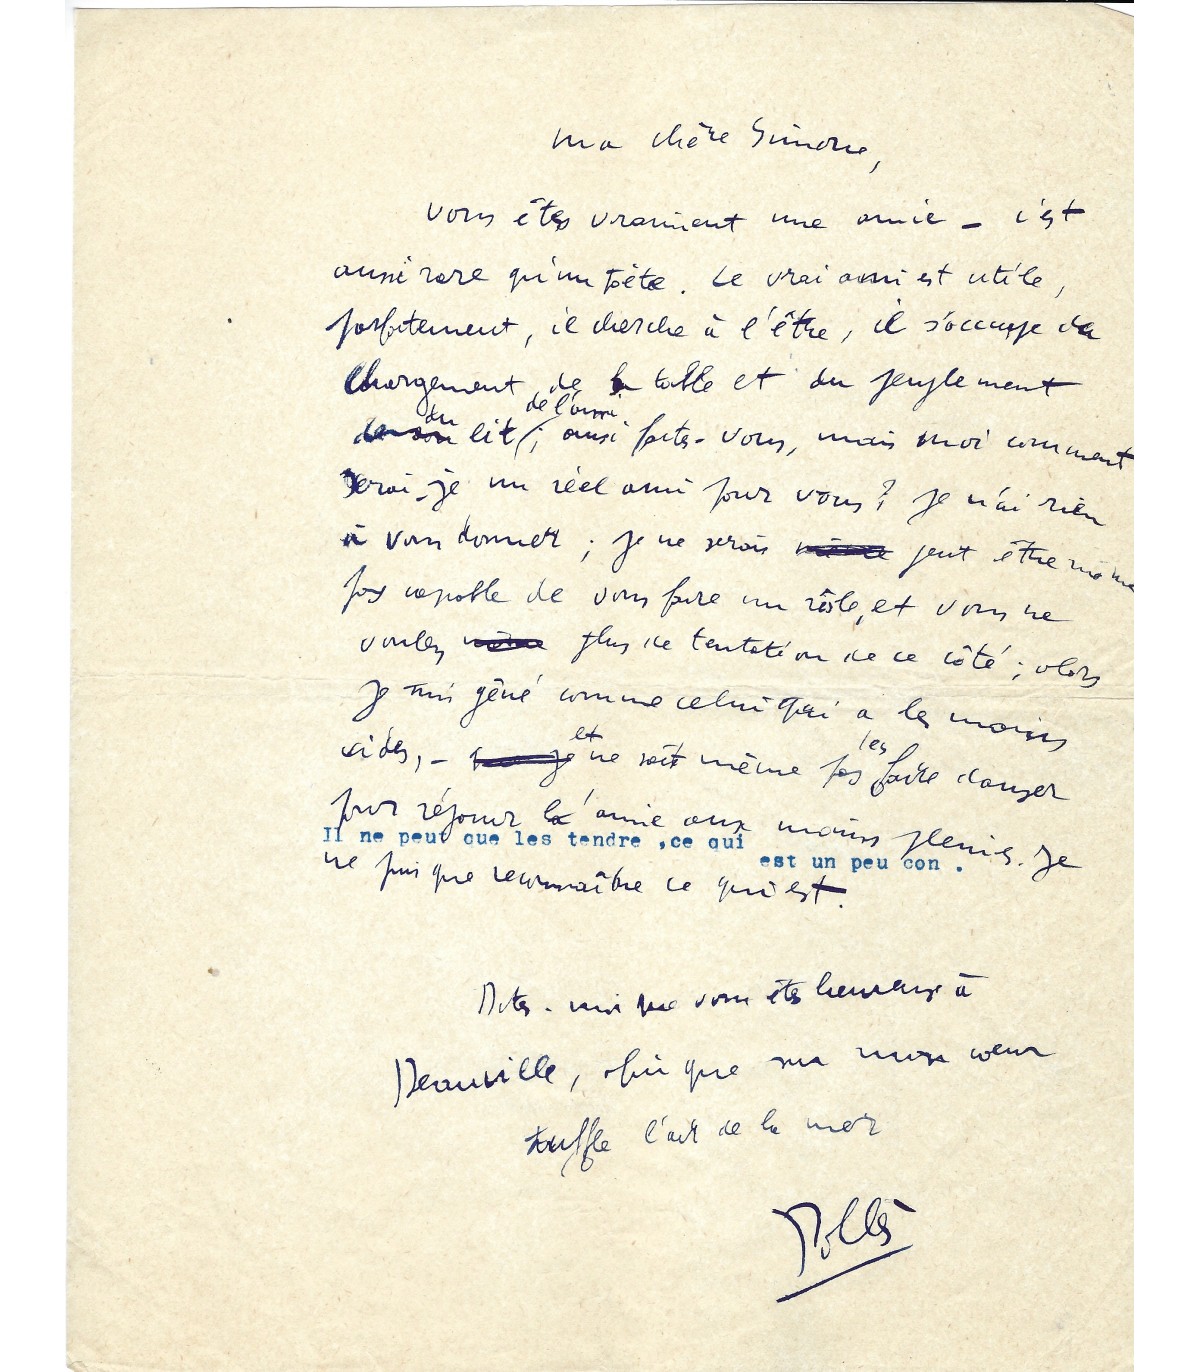 Ma chère Simone,
Vous êtes vraiment une amie – c'est
aussi rare qu'un poète. Le vrai ami est utile,
parfaitement, il cherche à l'être, il s'occupe du
chargement de la table et du peuplement
du lit de l'ami ; ainsi faites-vous, mais moi comment
serai-je un réel ami pour vous ? Je n'ai rien
à vous donner ; je ne serais peut être même
pas capable de vous faire un rôle, et vous ne
voulez plus de tentation de ce côté ; alors
je suis gêné comme celui qui a les mains
vides, – et ne sait même pas les faire danser
pour réjouir l'amie aux mains pleines. Je
Il ne peut que les tendre ,ce qui
est un peu con .
ne puis que reconnaître ce qui est.
Dites-moi que vous êtes heureuse à
Deauville, afin que sur mon cœur
souffle l'air de la mer